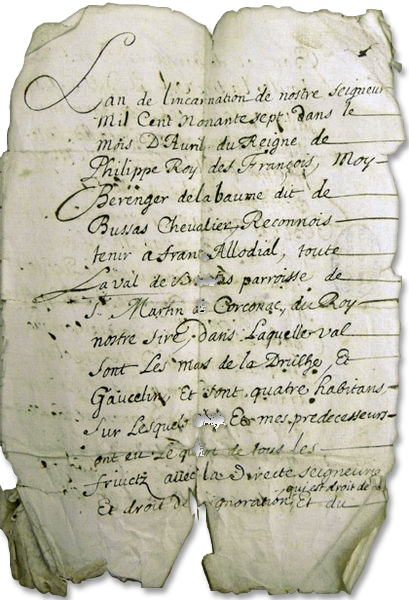 Lan de lincarnation de nostre seigneur
Mil Cent Nonante sept dans le
mois D'Avril du Reigne de
Philippe Roy des François, Moy
Berenger de la baume dit de
Bussas Chevalier, Reconnois
tenir a franc Allodial, toute
La val de parroisse de
St Martin de Corconac, du Roy
nostre sire, dans Laquelle val
sont Les mas de la Druilhe, Et
Gaucelin, Et sont quatre habitans
sur Lesquels Et mes predecesseurs
ont eu Le quart de tous les
fruictz avec la Directe seigneurie
qui est droit de
Et droit de Et du